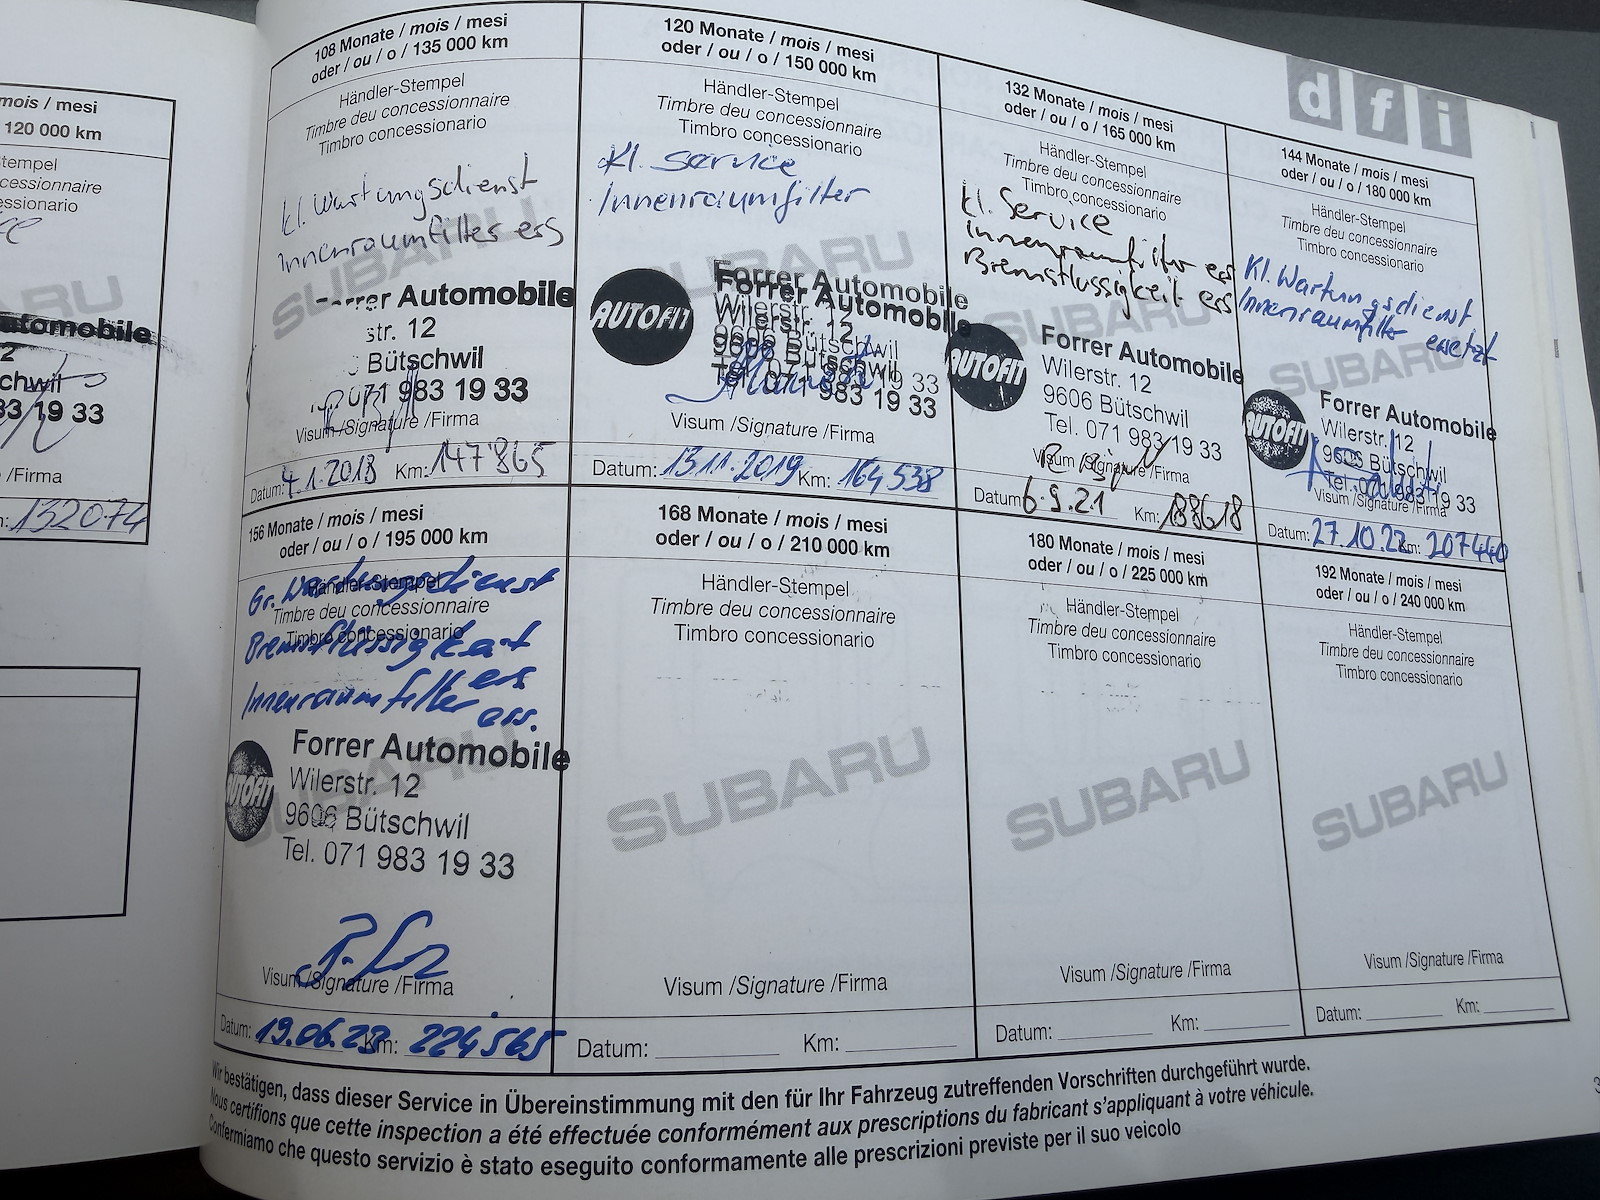 mois / mesi
120 000 km
tempel
concessionnaire
essionario
RU
utomobile
2
chwil
33 19 33
e /Firma
132074
108 Monate / mois / mesi
oder / ou / o / 135 000 km
Händler-Stempel
Timbre deu concessionnaire
Timbro concessionario
kl. Wartungsdienst
Innenraumfilter ers
SUBARU
Forrer Automobile
str. 12
Bütschwil
071 983 19 33
Visum /Signature /Firma
Datum: 4.1.2018 Km: 147'865
120 Monate / mois / mesi
oder / ou / o / 150 000 km
Händler-Stempel
Timbre deu concessionnaire
Timbro concessionario
Kl. Service
Innenraumfilter
SUBARU
AUTOFIT
Forrer Automobile
Wilerstr. 12
9606 Bütschwil
Tel. 071 983 19 33
Visum /Signature /Firma
Datum: 13.11.2019 Km: 164538
132 Monate / mois / mesi
oder / ou / o / 165 000 km
Händler-Stempel
Timbre deu concessionnaire
Timbro concessionario
kl. Service
Innenraumfilter ers
Bremsflüssigkeit ers
SUBARU
AUTOFIT
Forrer Automobile
Wilerstr. 12
9606 Bütschwil
Tel. 071 983 19 33
Visum /Signature /Firma
Datum: 6.9.21 Km: 188618
dfi
144 Monate / mois / mesi
oder / ou / o / 180 000 km
Händler-Stempel
Timbre deu concessionnaire
Timbro concessionario
Kl. Wartungsdienst
Innenraumfilter ersetzt
SUBARU
AUTOFIT
Forrer Automobile
Wilerstr. 12
9606 Bütschwil
Tel. 071 983 19 33
Visum /Signature /Firma
Datum: 27.10.22 Km: 207440
156 Monate / mois / mesi
oder / ou / o / 195 000 km
Händler-Stempel
Timbre deu concessionnaire
Timbro concessionario
Gr. Wartungsdienst
Bremsflüssigkeit
ers
Innenraumfilter
ers.
AUTOFIT
Forrer Automobile
Wilerstr. 12
9606 Bütschwil
Tel. 071 983 19 33
Visum /Signature /Firma
Datum: 19.06.23 Km: 224565
168 Monate / mois / mesi
oder / ou / o / 210 000 km
Händler-Stempel
Timbre deu concessionnaire
Timbro concessionario
SUBARU
Visum /Signature /Firma
Datum: Km:
180 Monate / mois / mesi
oder / ou / o / 225 000 km
Händler-Stempel
Timbre deu concessionnaire
Timbro concessionario
SUBARU
Visum /Signature /Firma
Datum: Km:
192 Monate / mois / mesi
oder / ou / o / 240 000 km
Händler-Stempel
Timbre deu concessionnaire
Timbro concessionario
SUBARU
Visum /Signature /Firma
Datum: Km:
Wir bestätigen, dass dieser Service in Übereinstimmung mit den für Ihr Fahrzeug zutreffenden Vorschriften durchgeführt wurde.
Nous certifions que cette inspection a été effectuée conformément aux prescriptions du fabricant s'appliquant à votre véhicule.
Confermiamo che questo servizio è stato eseguito conformamente alle prescrizioni previste per il suo veicolo